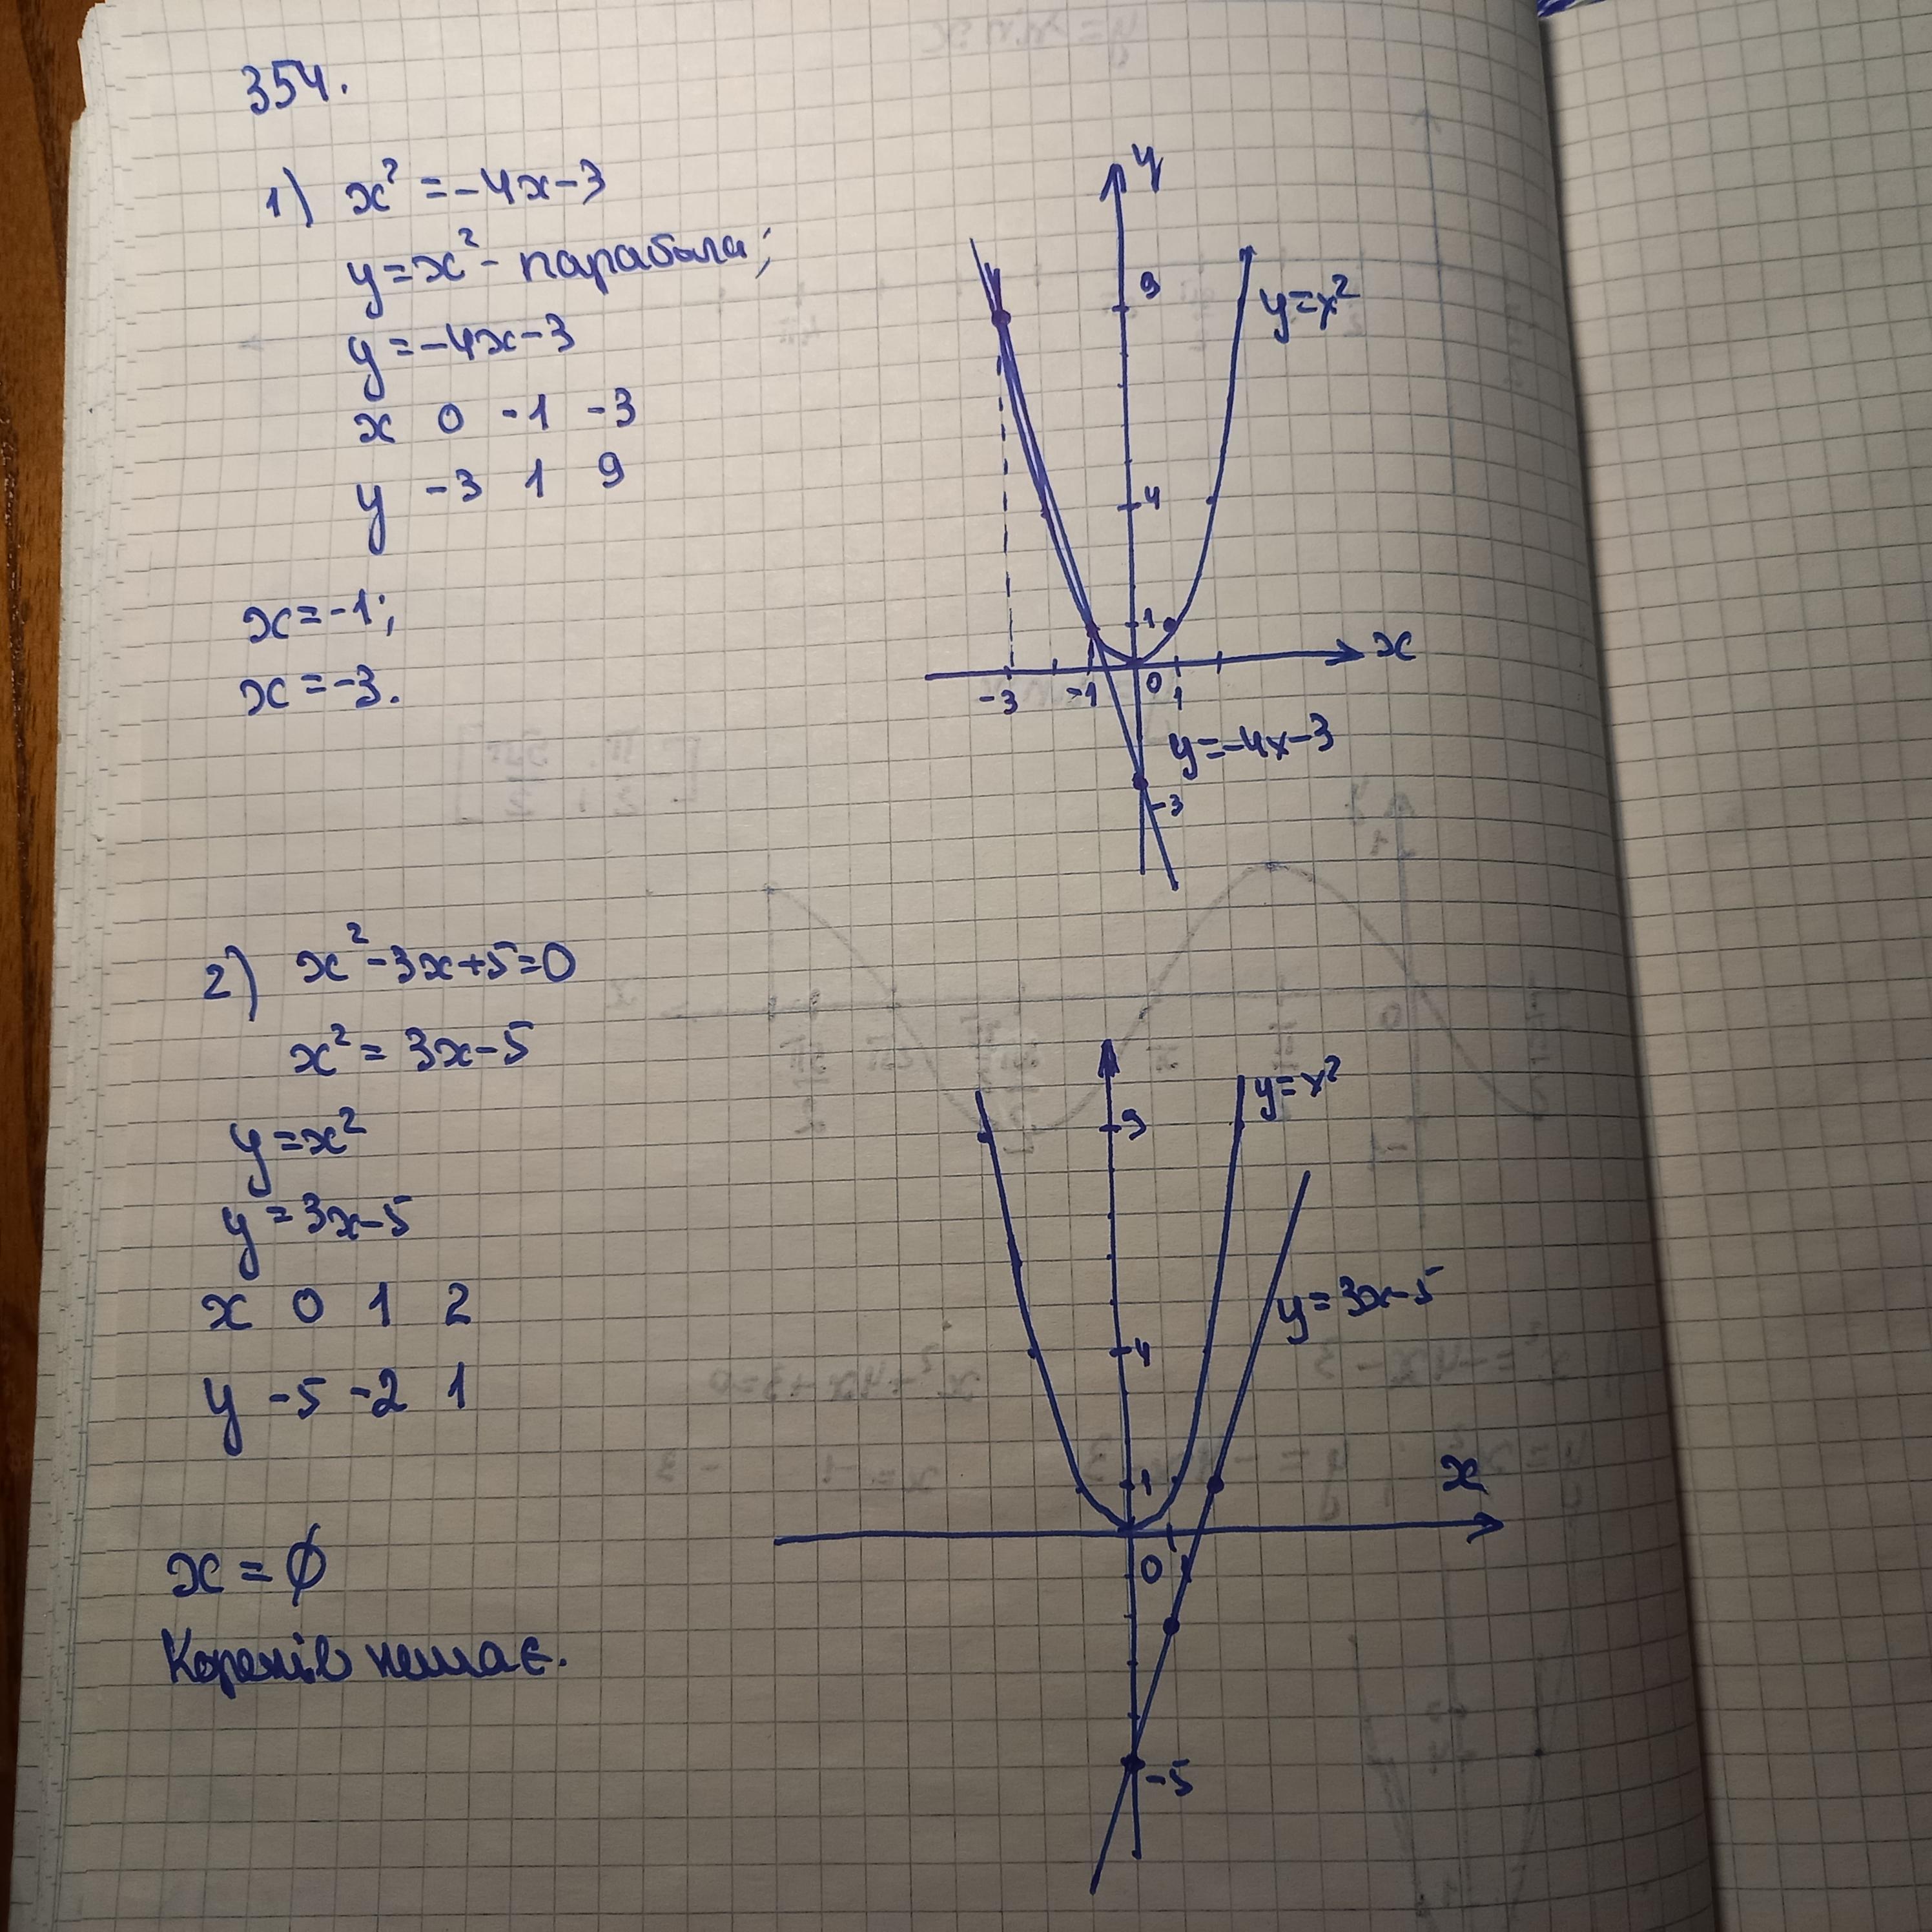 354.
1) x² = -4x-3
y=x² - парабола;
y = -4x-3
x 0 -1 -3
y -3 1 9
x=-1;
x=-3.
y
9
y=x²
4
1
x
-3 -1 0 1
y=-4x-3
-3
2) x²-3x+5=0
x² = 3x-5
y=x²
y=3x-5
x 0 1 2
y -5 -2 1
x = ∅
Коренів немає.
y=x²
9
y=3x-5
4
1
x
0 1
-5